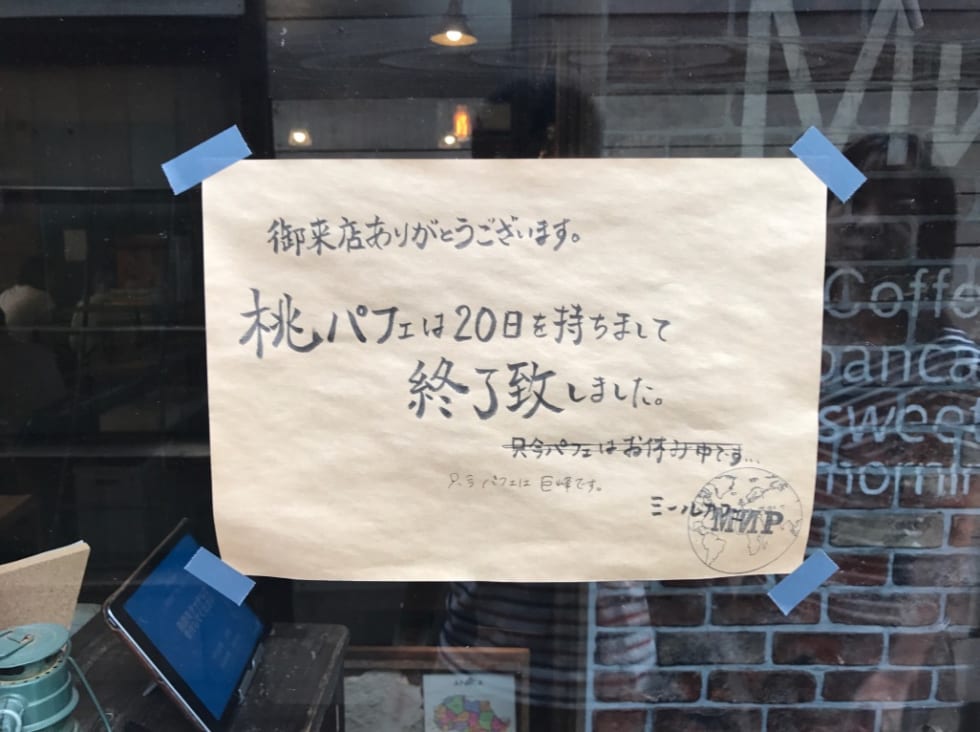 御来店ありがとうございます。
桃パフェは20日を持ちまして
終了致しました。
只今パフェはお休み中です…
只今パフェは巨峰です。
ミールカフェ
Coffe
panca
sweet
mornin